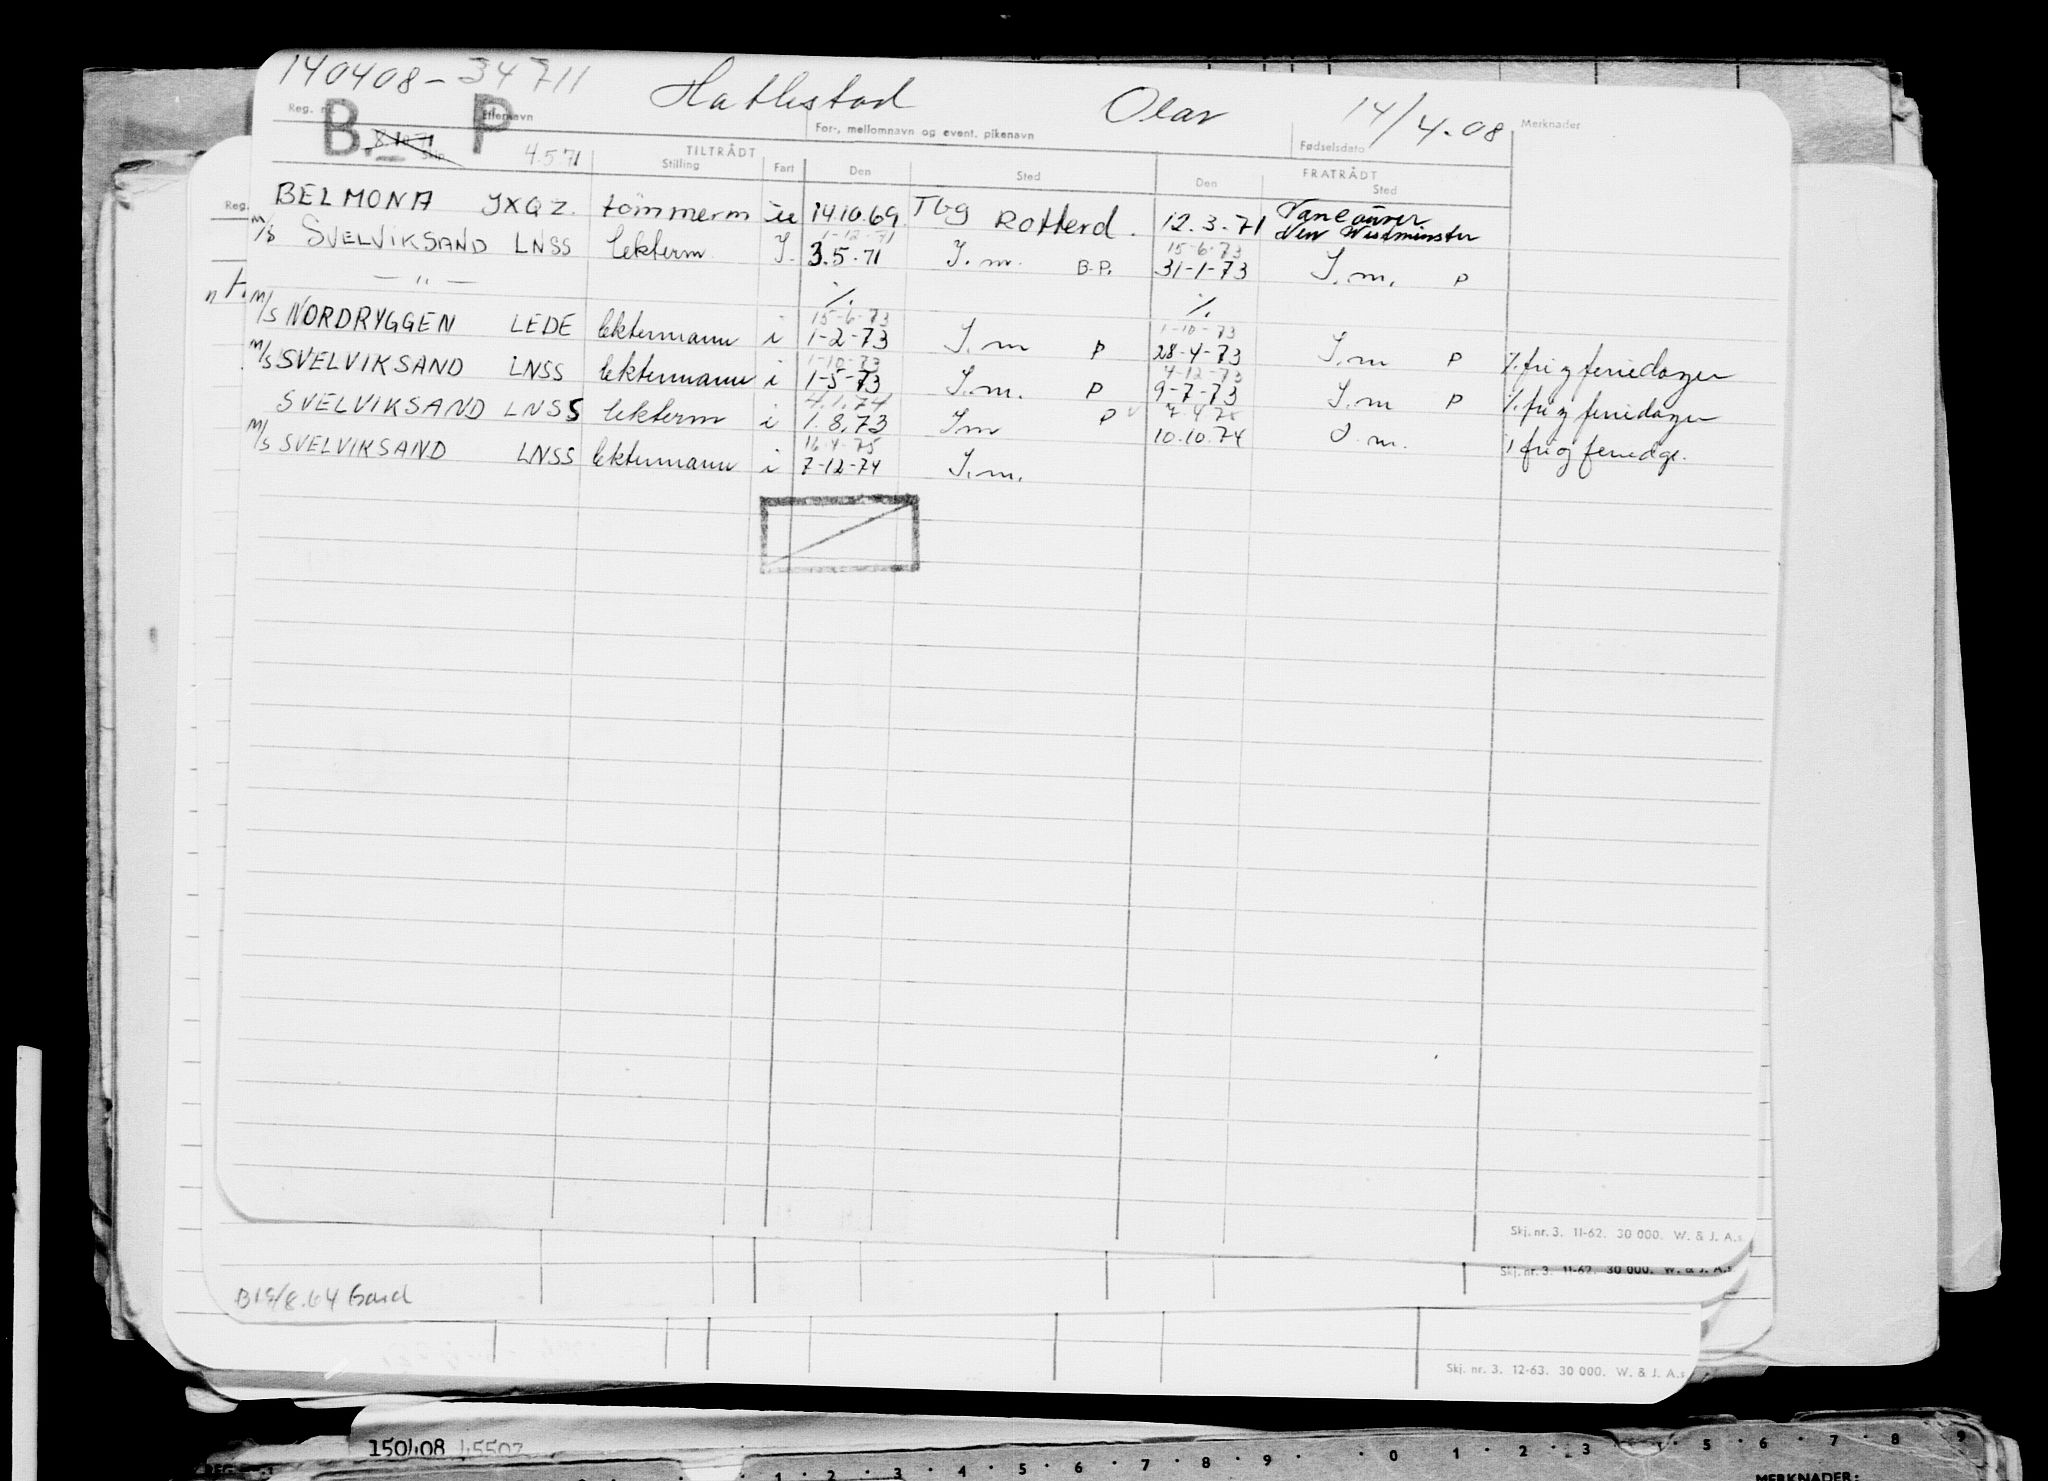 140408-34711 Hatlestad Olav 14/4-08
Reg. nr. Etternavn For-, mellomnavn og event. pikenavn Fødselsdato Merknader
B. P
8.10.71 Skip 4.5.71 TILTRÅDT FRATRÅDT
Stilling Fart Den Sted Den Sted
BELMONA JXQZ. tömmerm u 14.10.69. Tbg Rotterd. 12.3.71 Vancouver
New Westminster
1-12-71 15-6-73
M/S SVELVIKSAND LNSS lekterm J. 3.5.71 J.m. B.P. 31-1-73 J.m. P
— " — ./. ./.
15-6-73 1-10-73
M/S NORDRYGGEN LEDE lektermann i 1-2-73 J.m P 28-4-73 J.m P ./. fri og feriedager
1-10-73 4-12-73
M/S SVELVIKSAND LNSS lektermann i 1-5-73 J.m. P 9-7-73 J.m P ./. fri og feriedager
4.1.74
SVELVIKSAND LNSS lekterm i 1.8.73 Jm P 10.10.74 J.m. fri og feriedge.
16.4.75
M/S SVELVIKSAND LNSS lektermann i 7-12-74 J.m.
Reg.
Skj. nr. 3. 11-62. 30 000. W. & J. A.s
Skj. nr. 3. 11-62. 30 000. W. & J. A.s
Skj. nr. 3. 12-63. 30 000. W. & J. A.s
150408 45502
1 2 3 4 5 6 7 8 9 0 1 2 3 5 6 7 8 9
MERKNADER: